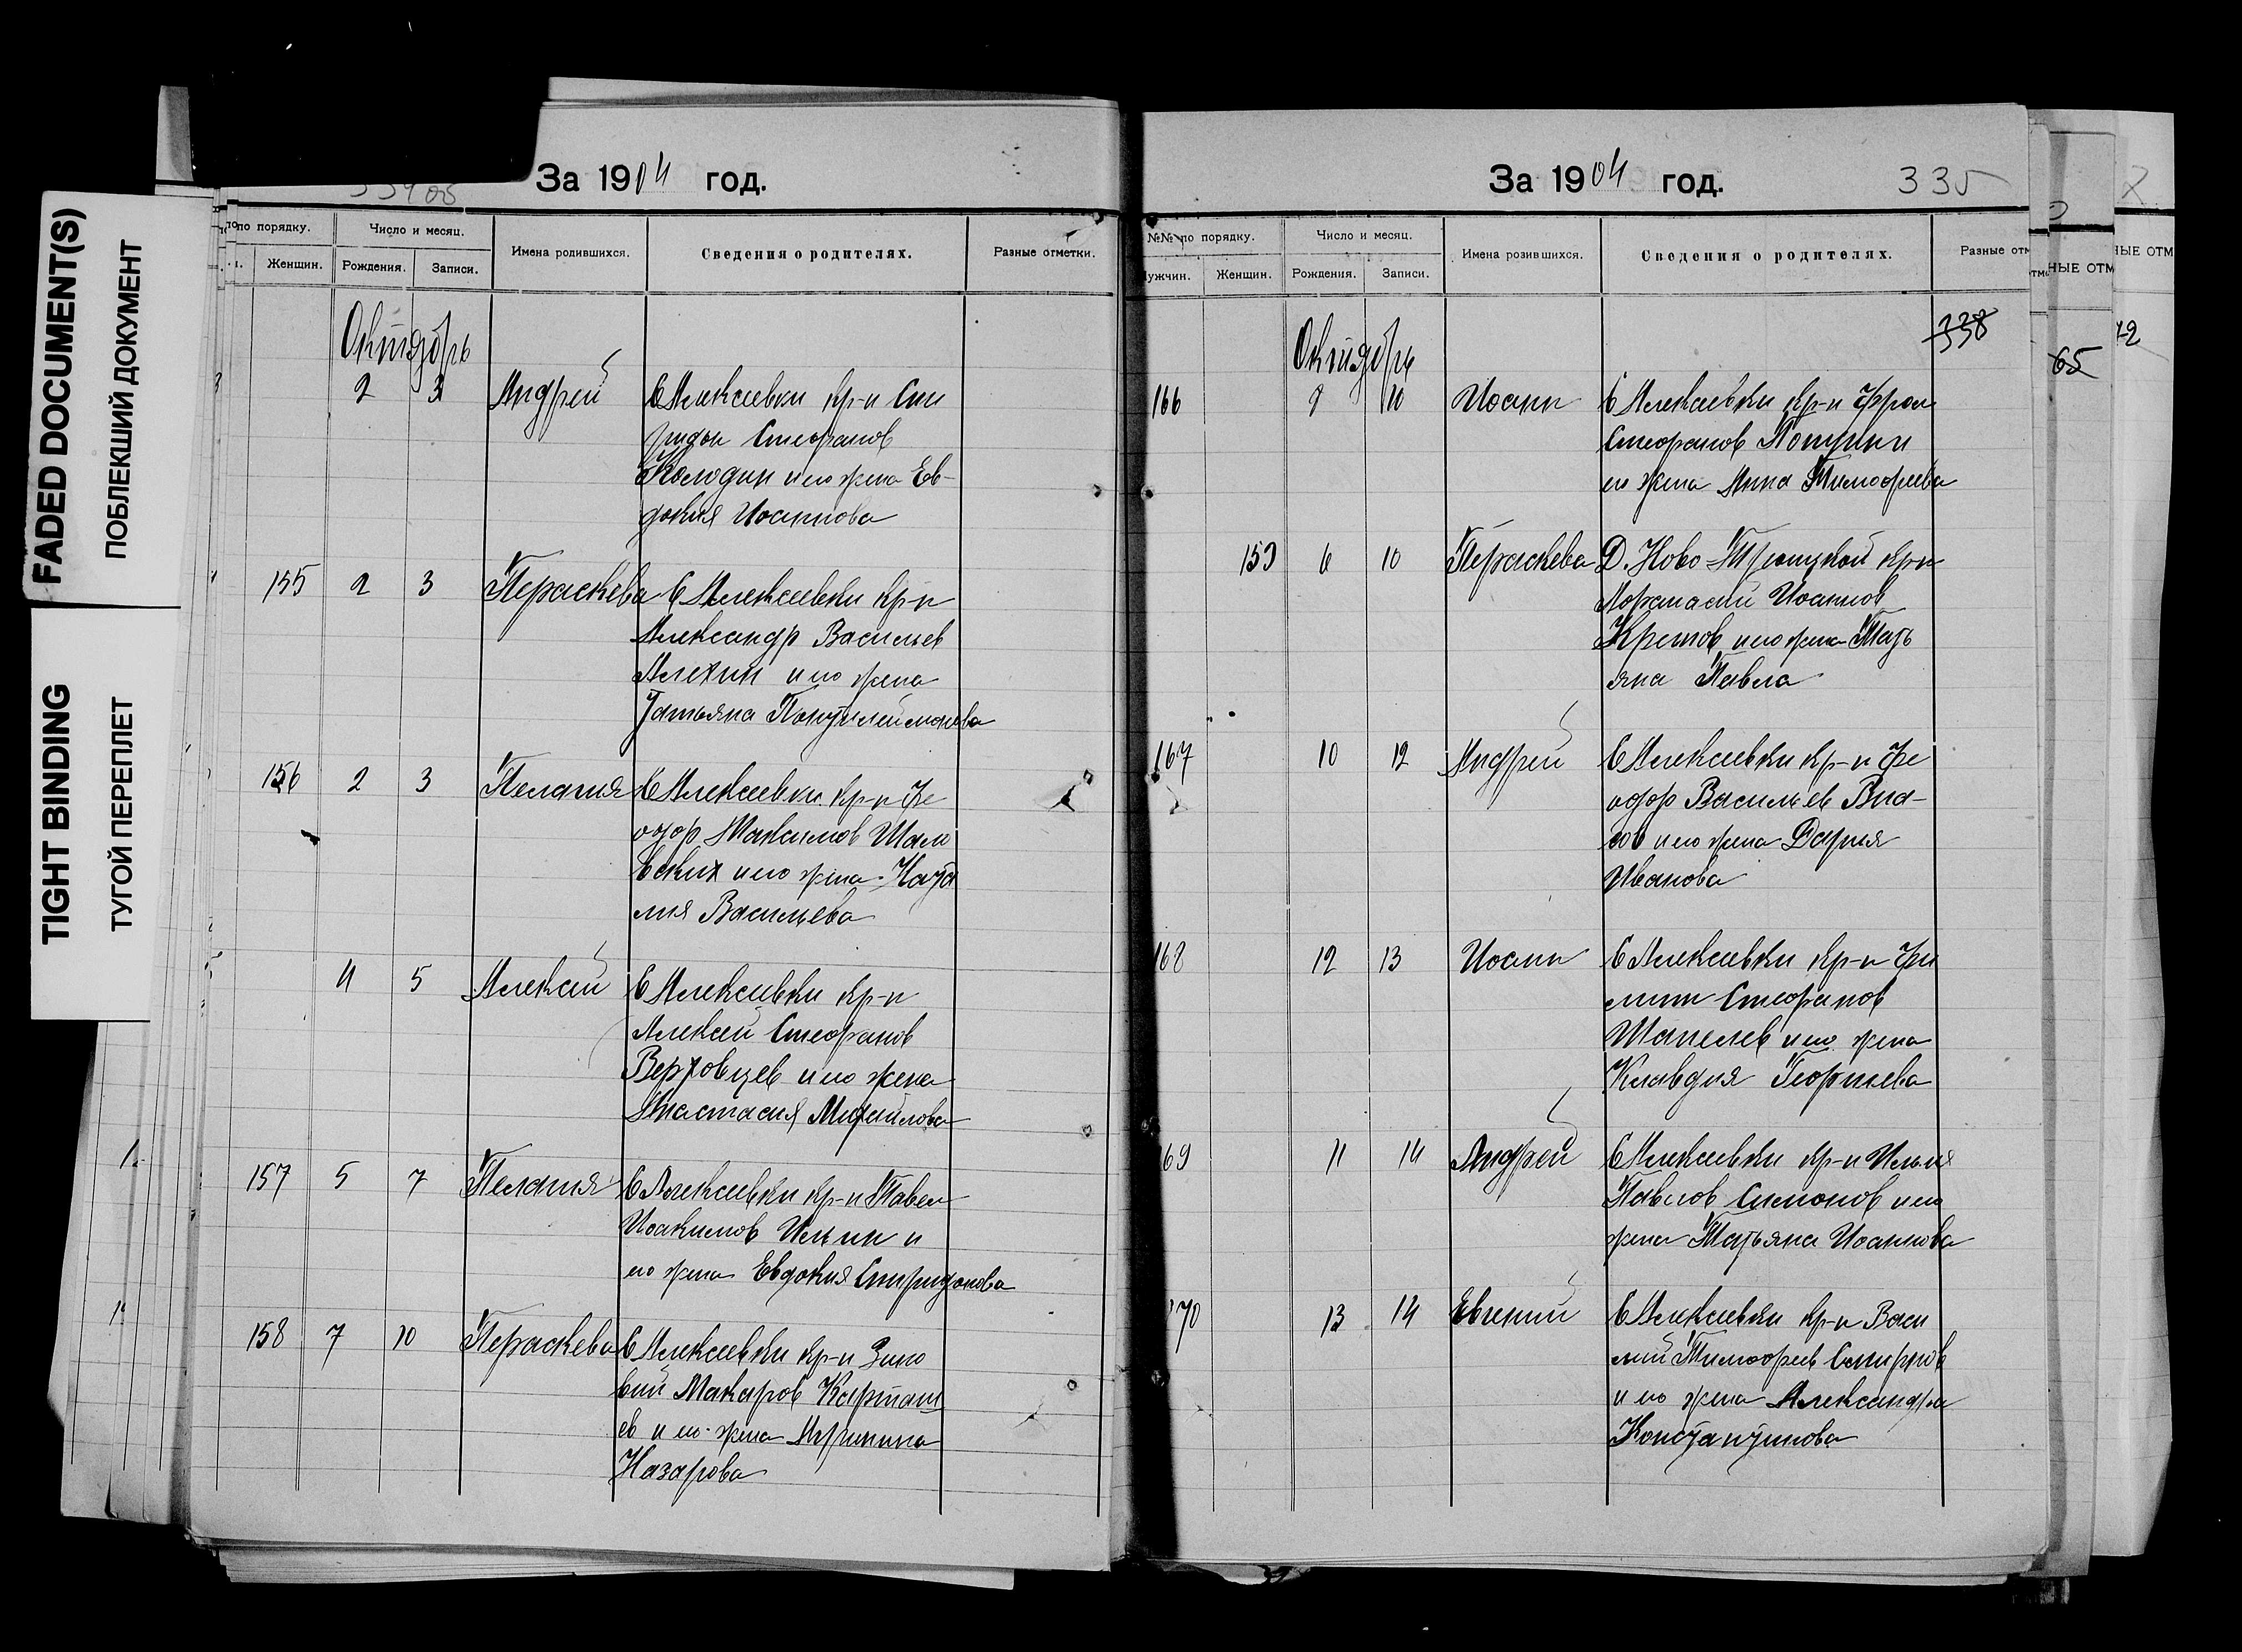 FADED DOCUMENT(S)
ПОБЛЕКШИЙ ДОКУМЕНТ
TIGHT BINDING
ТУГОЙ ПЕРЕПЛЕТ
За 1904 год.
по порядку. Число и месяц. Имена родившихся. Сведения о родителях. Разные отметки.
Женщин. Рождения. Записи.
Октябрь
2 3 Андрей С Алексеевки кр-н Спи
ридон Стефанов
Колодин и его жена Ев-
докия Иоаннова
155 2 3 Параскева С Алексеевки кр-н
Александр Васильев
Алехин и его жена
Татьяна
156 2 3 Пелагия С Алексеевки кр-н Фе
одор Максимов
и его жена Ната
лия Васильева
4 5 Алексей С Алексеевки кр-н
Алексей Стефанов
Верховцев и его жена
Анастасия Михайлова
157 5 7 Пелагия С Алексеевки кр-н Павел
Иоакимов Ильин и
его жена Евдокия Спиридонова
158 7 10 Параскева С Алексеевки кр-н Зино
вий Макаров Карташ
ев и его жена
Назарова
За 1904 год. 335
№№ по порядку. Число и месяц. Имена розившихся. Сведения о родителях. Разные отм
Мужчин. Женщин. Рождения. Записи.
338
Октябрь
166 10 Иоанн С Алексеевки кр-н Фрол
Стефанов
его жена Анна Тимофеева
159 6 10 Параскева Д. Ново-Троицкой кр-н
Афанасий Иоаннов
и его жена Тать
яна Павла
167 10 12 Андрей С Алексеевки кр-н Фе
одор Васильев
и его жена Дарья
Иванова
168 12 13 Иоанн С Алексеевки кр-н Фи
липп Стефанов
Шапелев и его жена
Клавдия Георгиева
169 11 14 Андрей С Алексеевки кр-н Илья
Павлов Симонов и его
жена Татьяна Иоаннова
170 13 14 Евгений С Алексеевки кр-н Васи
лий Тимофеев Смирнов
и его жена Александра
Константинова
НЫЕ ОТМ
65
НЫЕ ОТМ